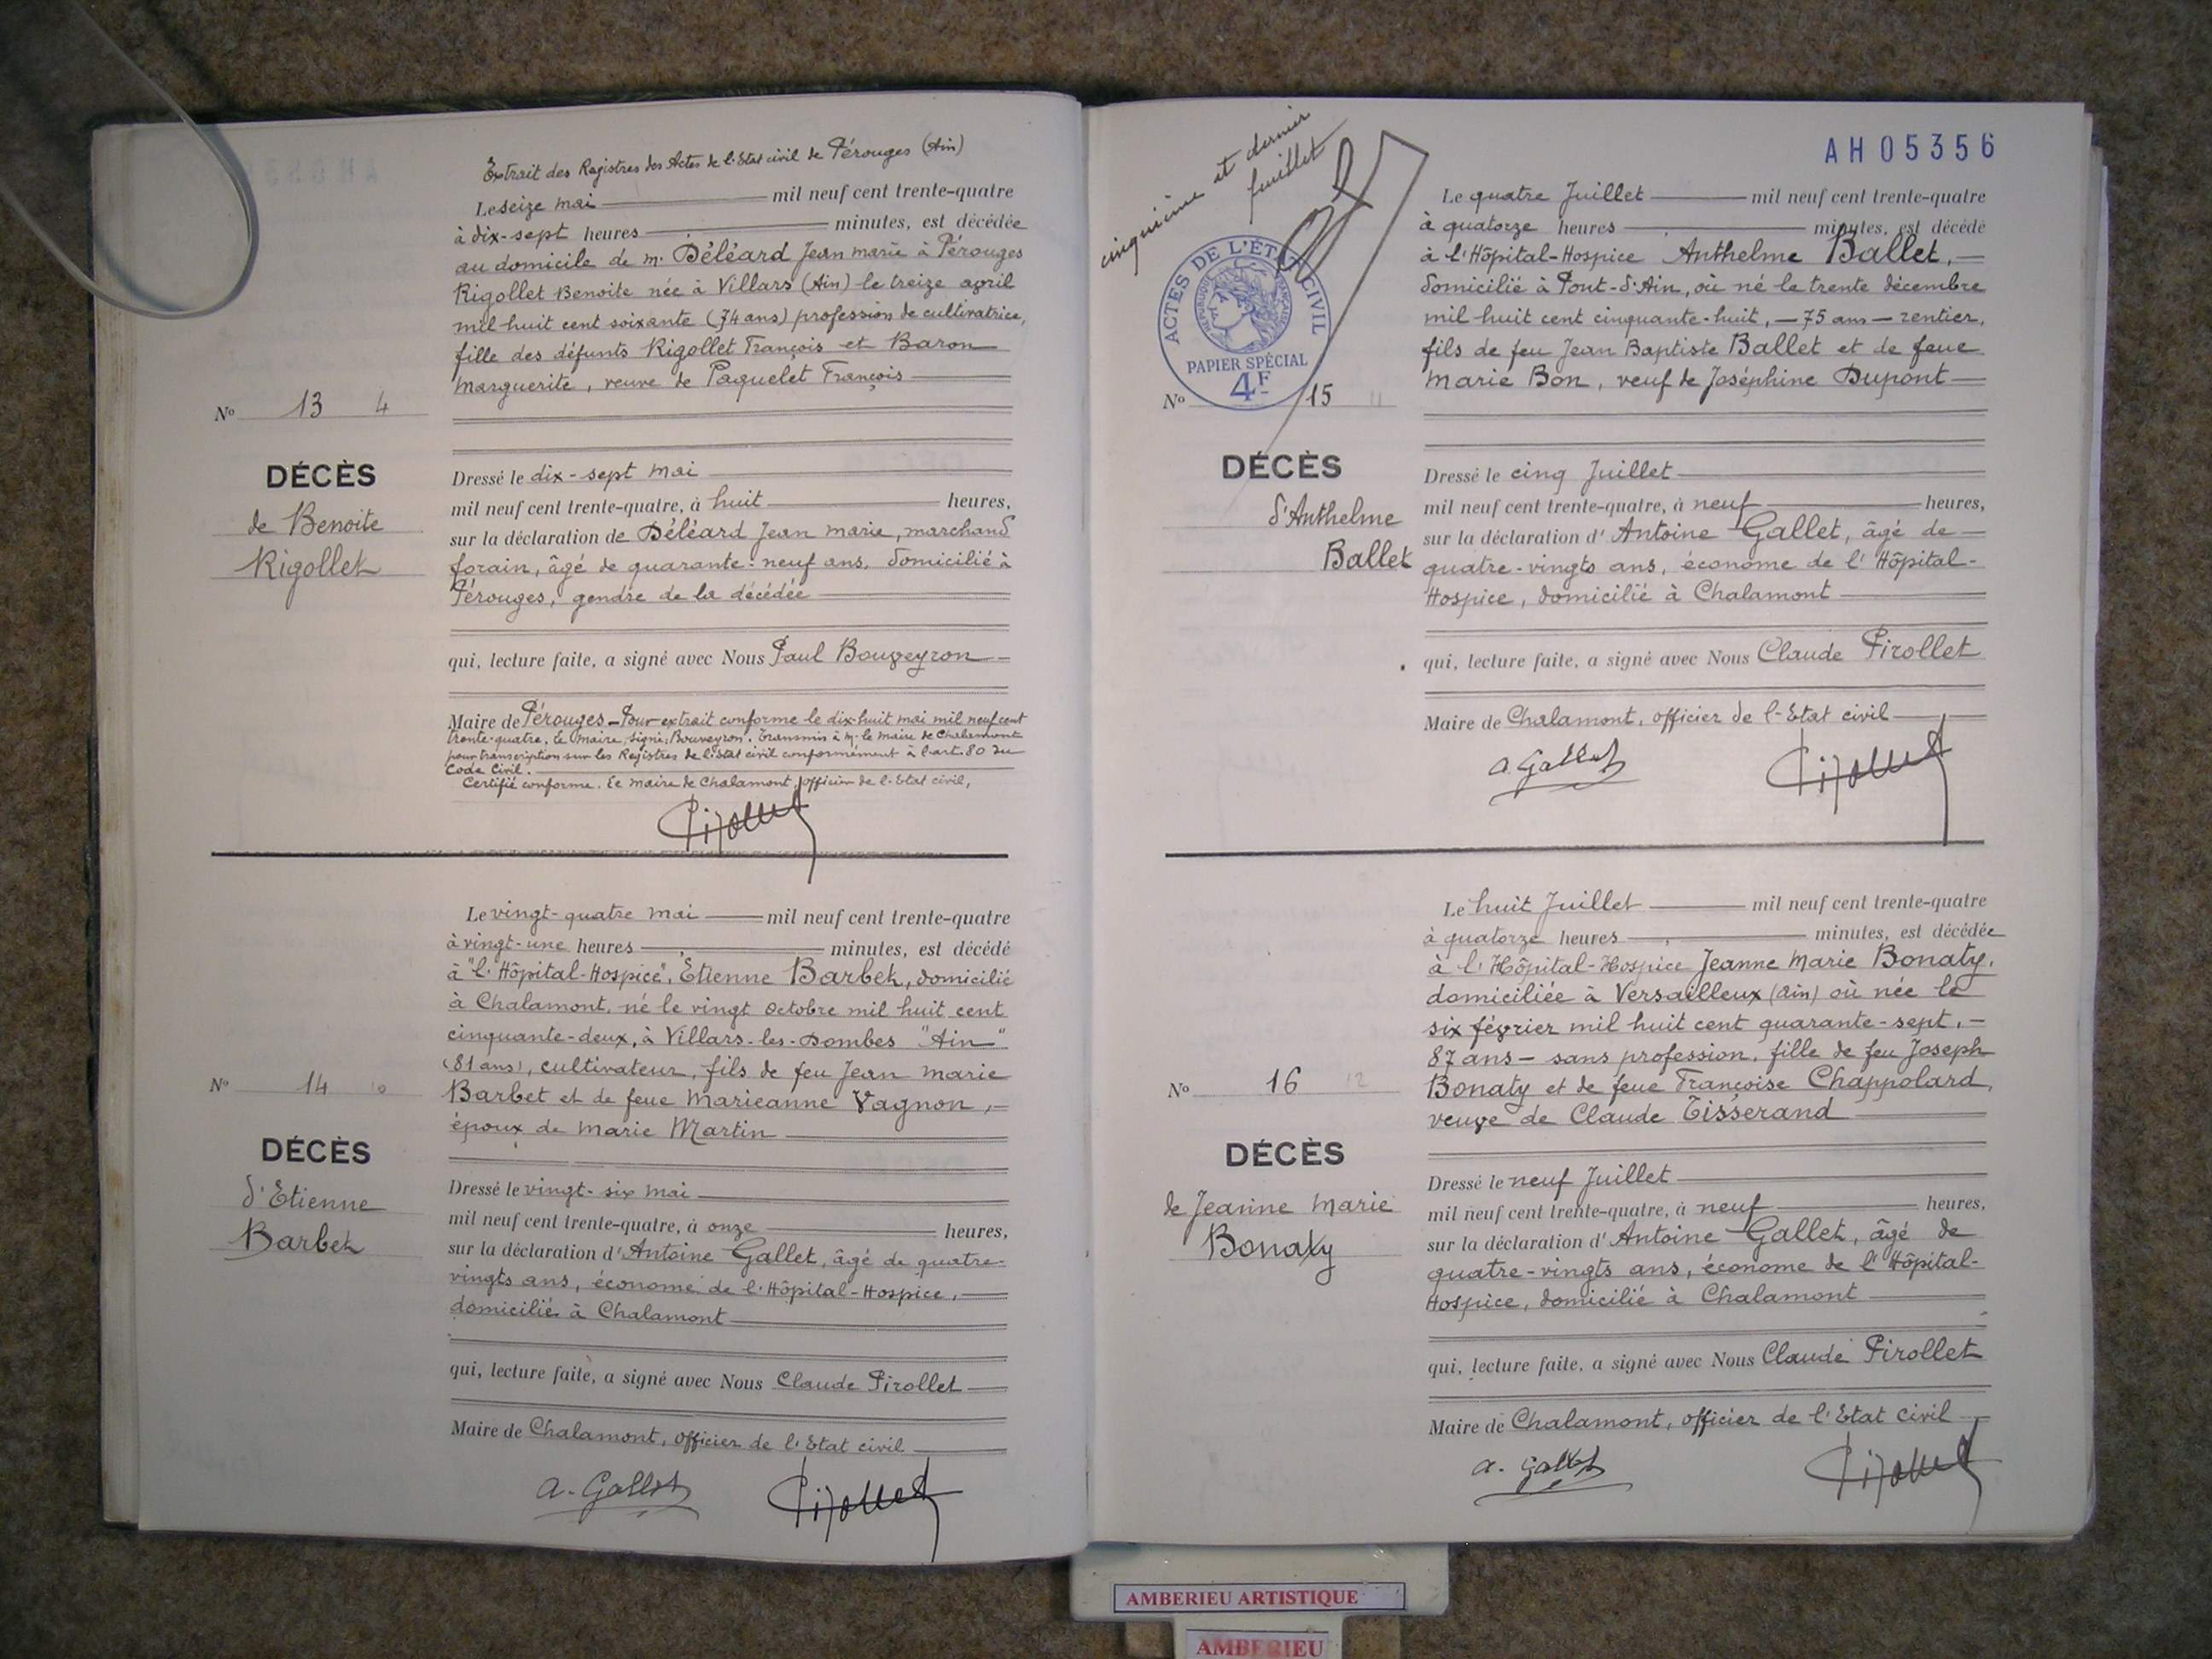 Extrait des Registres des Actes de l'Etat civil de Pérouges (Ain)
Le seize mai mil neuf cent trente-quatre
à dix-sept heures minutes, est décédée
au domicile de m. Déléard Jean marie à Pérouges
Rigollet Benoite née à Villars (Ain) le treize april
mil huit cent soixante (74 ans) profession de cultivatrice,
fille des défunts Rigollet François et Baron
marguerite, veuve de Paquelet François
No 13 4
DÉCÈS
de Benoite
Rigollet
Dressé le dix-sept mai
mil neuf cent trente-quatre, à huit heures,
sur la déclaration de Déléard Jean marie, marchand
forain, âgé de quarante-neuf ans, domicilié à
Pérouges, gendre de la décédée
qui, lecture faite, a signé avec Nous Paul Bouveyron
Maire de Pérouges - Pour extrait conforme le dix-huit mai mil neuf cent
trente-quatre, le maire, signé: Bouveyron. Transmis à M. le maire de Chalamont
pour transcription sur les Registres de l'état civil conformément à l'art. 80 du
Code Civil.
Certifié conforme. Le maire de Chalamont, officier de l'Etat civil,
Pirollet
Le vingt-quatre mai mil neuf cent trente-quatre
à vingt-une heures minutes, est décédé
à "l'Hôpital-Hospice", Etienne Barbet, domicilié
à Chalamont, né le vingt octobre mil huit cent
cinquante-deux, à Villars-les-Dombes "Ain"
(81 ans), cultivateur, fils de feu Jean marie
Barbet et de feue Marieanne Vagnon,
époux de marie Martin
No 14
DÉCÈS
d'Etienne
Barbet
Dressé le vingt-six mai
mil neuf cent trente-quatre, à onze heures,
sur la déclaration d'Antoine Gallet, âgé de quatre-
vingts ans, économe de l'Hôpital-Hospice,
domicilié à Chalamont
qui, lecture faite, a signé avec Nous Claude Pirollet
Maire de Chalamont, officier de l'Etat civil
a. Gallet Pirollet
cinquième et dernier
feuillet
AH05356
ACTES DE L'ÉTAT CIVIL
RÉPUBLIQUE FRANÇAISE
PAPIER SPÉCIAL
4F
Le quatre Juillet mil neuf cent trente-quatre
à quatorze heures minutes, est décédé
à l'Hôpital-Hospice Anthelme Ballet,
domicilié à Pont-d'Ain, où né le trente décembre
mil huit cent cinquante-huit, - 75 ans - rentier,
fils de feu Jean Baptiste Ballet et de feue
Marie Bon, veuf de Joséphine Dupont
No 15 11
DÉCÈS
d'Anthelme
Ballet
Dressé le cinq Juillet
mil neuf cent trente-quatre, à neuf heures,
sur la déclaration d'Antoine Gallet, âgé de
quatre-vingts ans, économe de l'Hôpital-
Hospice, domicilié à Chalamont
qui, lecture faite, a signé avec Nous Claude Pirollet
Maire de Chalamont, officier de l'Etat civil
a. Gallet Pirollet
Le huit Juillet mil neuf cent trente-quatre
à quatorze heures minutes, est décédée
à l'Hôpital-Hospice Jeanne Marie Bonaty,
domiciliée à Versailleux (Ain) où née le
six février mil huit cent quarante-sept, -
87 ans - sans profession, fille de feu Joseph
Bonaty et de feue Françoise Chappolard,
veuve de Claude Tisserand
No 16 12
DÉCÈS
de Jeanne Marie
Bonaty
Dressé le neuf Juillet
mil neuf cent trente-quatre, à neuf heures,
sur la déclaration d'Antoine Gallet, âgé de
quatre-vingts ans, économe de l'Hôpital-
Hospice, domicilié à Chalamont
qui, lecture faite, a signé avec Nous Claude Pirollet
Maire de Chalamont, officier de l'Etat civil
a. Gallet Pirollet
AMBERIEU ARTISTIQUE
AMBERIEU